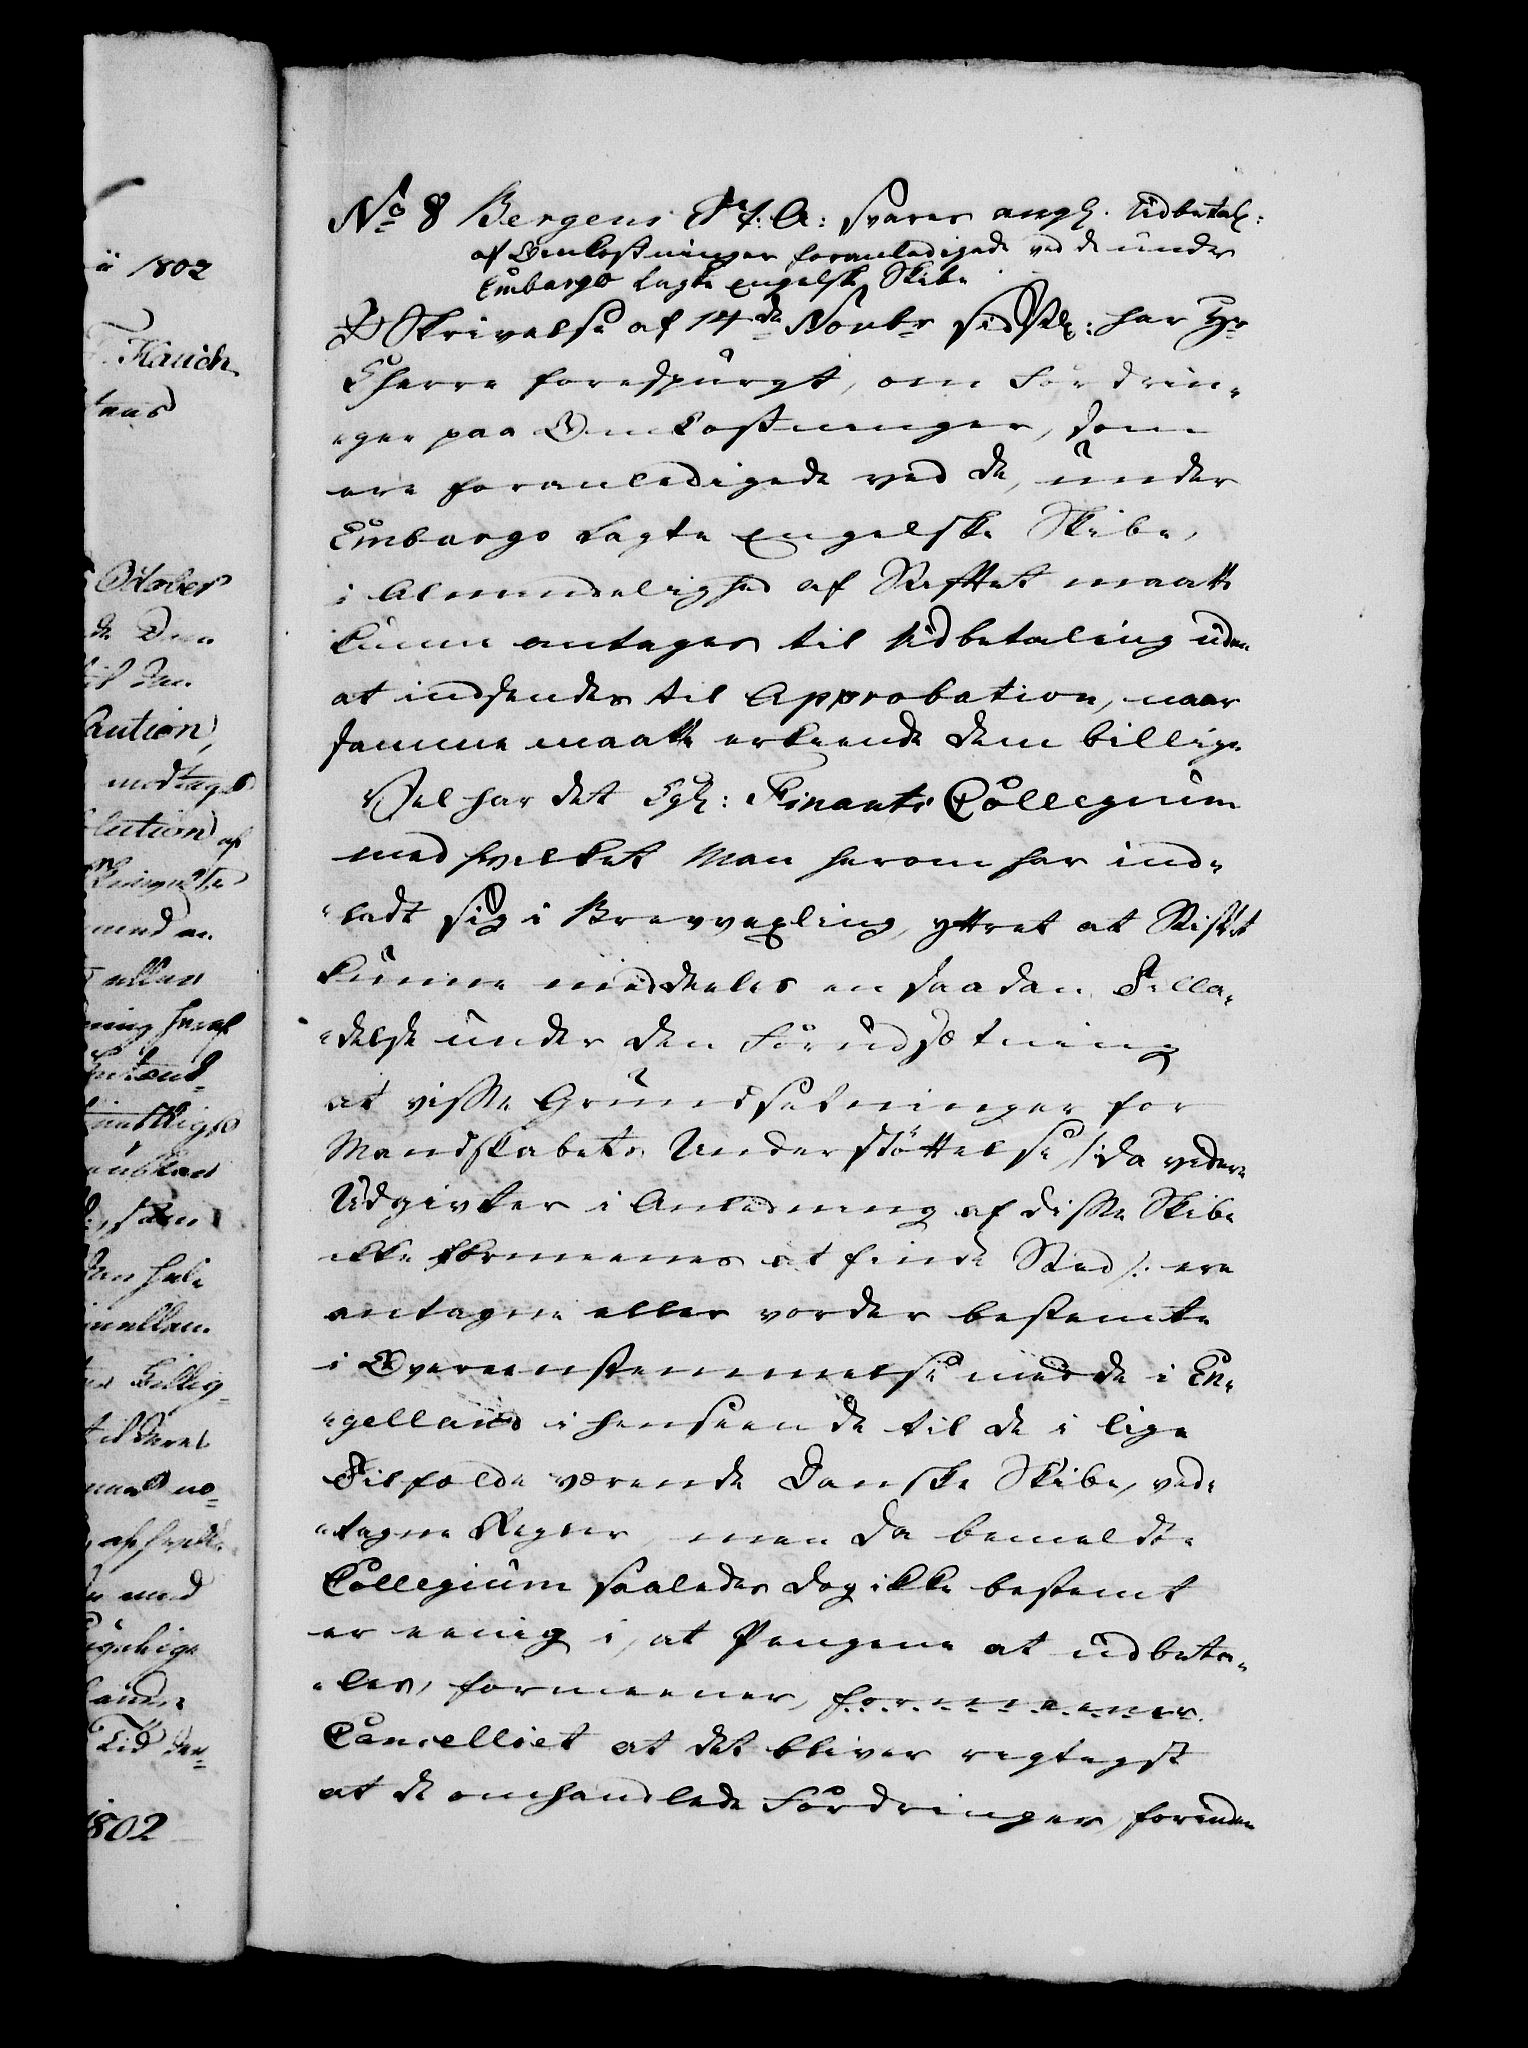 No 8 Bergens St: A: svares angl. Udbetal:
af Omkostninger foranledigede ved de under
Embargo lagte engelske Skibe
I Skrivelse af 14de Novbr sidstl: har Hr
Kherre forespurgt, om Fordrin-
-ger paa Omkostninger, som
ere foranledigede ved de, under
Embargo lagte Engelske Skibe,
i Almindelighed af Stiftet maatte
kunne antages til Udbetaling uden
at indsendes til Approbation, naar
samme maatte erkiende dem billige
Vel har det Kgl: Finants Collegium
med hvilket Man herom har ind-
-ladt sig i Brevvexling, yttret at Stiftet
kunne meddeeles en saadan Tilla-
-delse under den Forudsætning
at visse Grundsætninger for
Mandskabets Understöttelse /: da videre
Udgivter i Anledning af disse Skibe
ikke formeenes at finde Sted :/ ere
antagne eller vorder bestemte
i Overeenstemmelse med de i En-
-gelland i henseende til de i lige
Tilfælde værende Danske Skibe, ved-
-tagne Regler, men da bemeldte
Collegium saaledes dog ikke bestemt
er eenig i, at Pengene at udbeta-
-les, formeener, formeener
Cancelliet at det bliver rigtigst
at de omhandlede Fordringer, forinden
ii 1802
Kauch
October
de Om
den
Caution,
modtages
af
med en
eller
ning heraf
som
den hele
imellem
Billig-
til deres
no-
med
Tid den-
1802